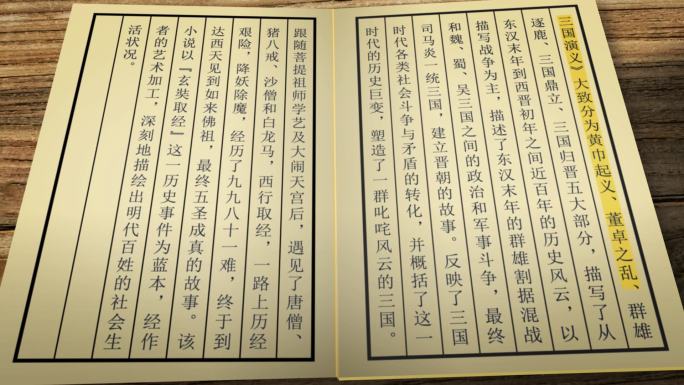 三国演义》大致分为黄巾起义、董卓之乱、群雄
逐鹿、三国鼎立、三国归晋五大部分，描写了从
东汉末年到西晋初年之间近百年的历史风云，以
描写战争为主，描述了东汉末年的群雄割据混战
和魏、蜀、吴三国之间的政治和军事斗争，最终
司马炎一统三国，建立晋朝的故事。反映了三国
时代各类社会斗争与矛盾的转化，并概括了这一
时代的历史巨变，塑造了一群叱咤风云的三国。
跟随菩提祖师学艺及大闹天宫后，遇见了唐僧、
猪八戒、沙僧和白龙马，西行取经，一路上历经
艰险，降妖除魔，经历了九九八十一难，终于到
达西天见到如来佛祖，最终五圣成真的故事。该
小说以『玄奘取经』这一历史事件为蓝本，经作
者的艺术加工，深刻地描绘出明代百姓的社会生
活状况。